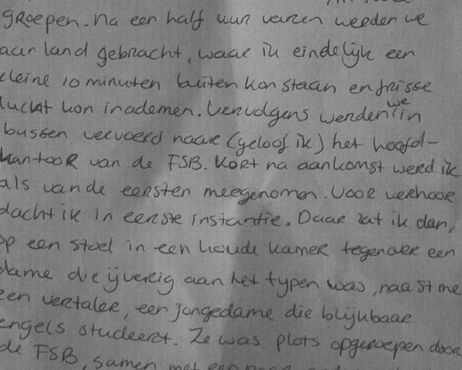 groepen. Na een half uur varen werden we
aan land gebracht, waar ik eindelijk een
kleine 10 minuten buiten kon staan en frisse
lucht kon inademen. Vervolgens werden we in
bussen vervoerd naar (geloof ik) het hoofd-
kantoor van de FSB. Kort na aankomst werd ik
als van de eersten meegenomen. Voor verhoor
dacht ik in eerste instantie. Daar zat ik dan,
op een stoel in een koude kamer tegenover een
dame die ijverig aan het typen was, naast me
een vertaler, een jongedame die blijkbaar
engels studeert. Ze was plots opgeroepen door
de FSB, samen met een